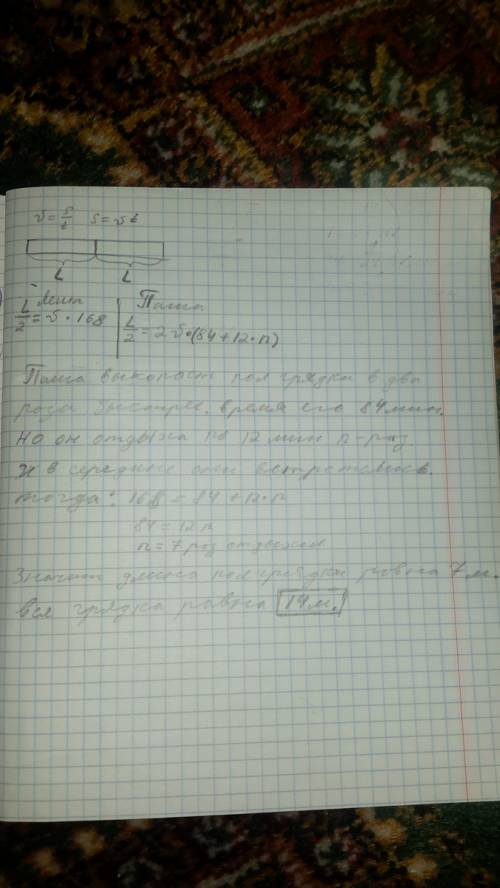 v = s/t   s = vt
L   L
Леша   Паша
L/2 = v · 168   L/2 = 2 v · (84 + 12 · n)
Паша выкопает пол грядки в два
раза быстрее. время его 84 мин.
но он отдыха по 12 мин n - раз
и в середине они встретились.
тогда: 168 = 84 + 12 · n
84 = 12 n
n = 7 раз отдыхал
Значит длина пол грядки равна 7 м.
вся грядка равна 14 м.